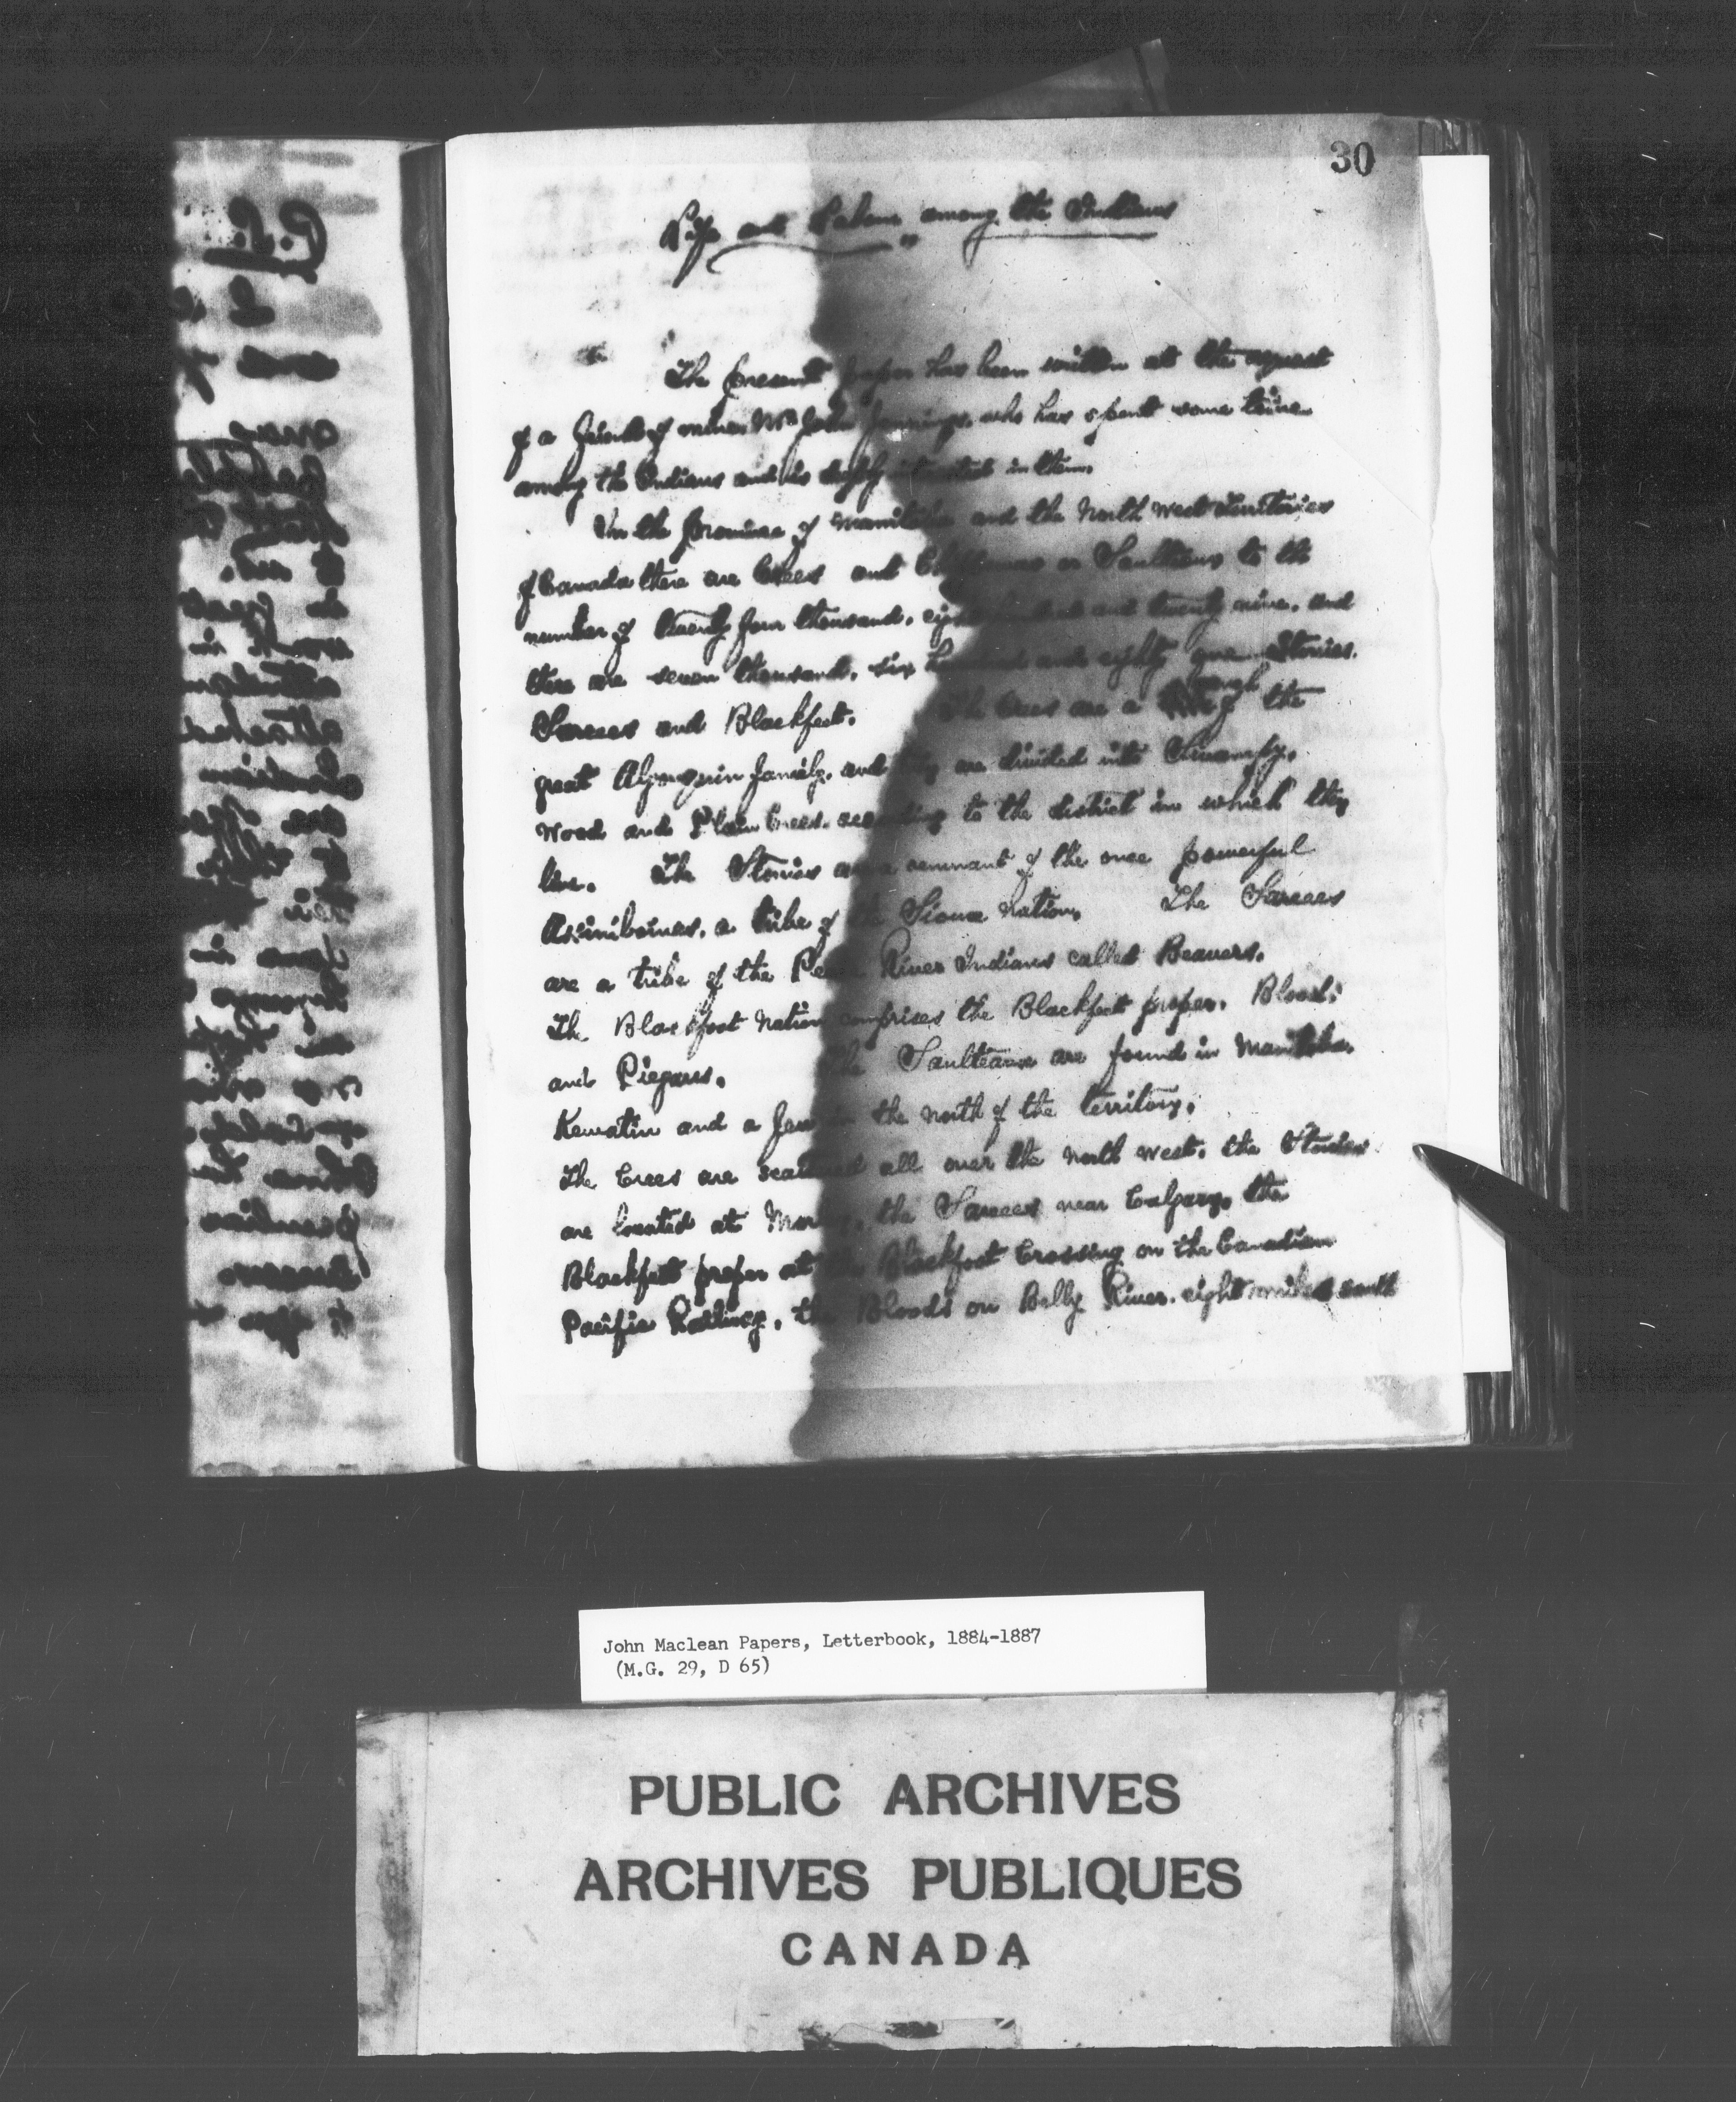 30
Life and Labour among the Indians
The present paper has been written at the request
of a friend of mine, Mr John Jennings, who has spent some time
among the Indians and is deeply interested in them.
In the province of Manitoba and the North West Territories
of Canada there are Crees and Chippewas or Saulteaux to the
number of twenty four thousand, eight hundred and twenty nine, and
there are seven thousand, six hundred and eighty Stonies,
Sarcees and Blackfeet. The Crees are a branch of the
great Algonquin family, and they are divided into Swampy,
Wood and Plain Crees, according to the district in which they
live. The Stonies are a remnant of the once powerful
Assiniboines, a tribe of the Sioux nation. The Sarcees
are a tribe of the Peace River Indians called Beavers.
The Blackfoot Nation comprises the Blackfeet proper, Bloods
and Piegans. The Saulteaux are found in Manitoba,
Kewatin and a few in the north of the territory.
The Crees are scattered all over the north west, the Stonies
are located at Morley, the Sarcees near Calgary, the
Blackfeet proper at the Blackfoot Crossing on the Canadian
Pacific Railway, the Bloods on Belly River, eight miles south
John Maclean Papers, Letterbook, 1884-1887
(M.G. 29, D 65)
PUBLIC ARCHIVES
ARCHIVES PUBLIQUES
CANADA